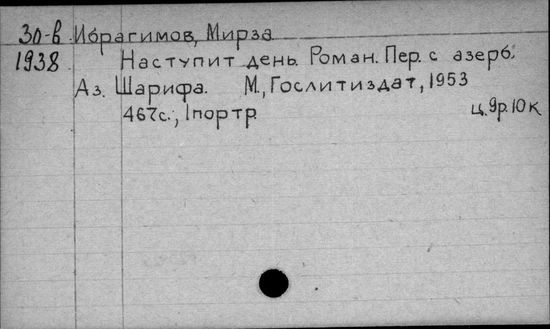 30-в Ибрагимов, Мирза
1938 Наступит день. Роман. Пер. с азерб.
Аз. Шарифа. М., Гослитиздат, 1953
467с., 1портр.
ц. 9р. 10к